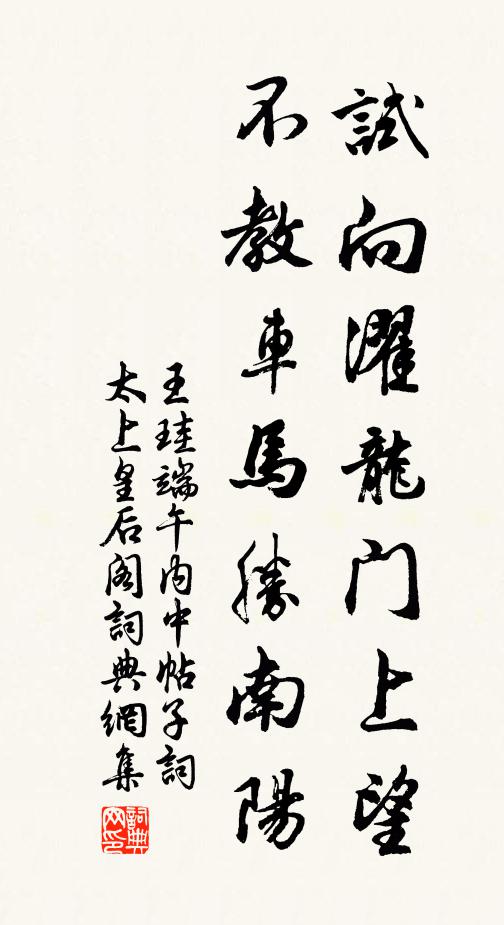 試向濯龍门上望
不教車馬勝南陽
王珪端午内中帖子詞
太上皇后阁詞典網集
詞典
网印